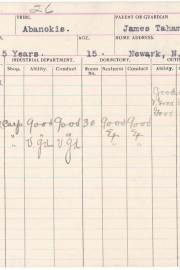 26
TRIBE. PARENT OR GUARDIAN
Abanokis. James Taham
AGE. HOME ADDRESS.
5 Years. 15 Newark, N.
INDUSTRIAL DEPARTMENT. DORMITORY. OUTI
Shop. Ability. Conduct Room No. Neatness Conduct
Good
Carp good good 30 good good
" " " Ex Ex
" V gd V gd